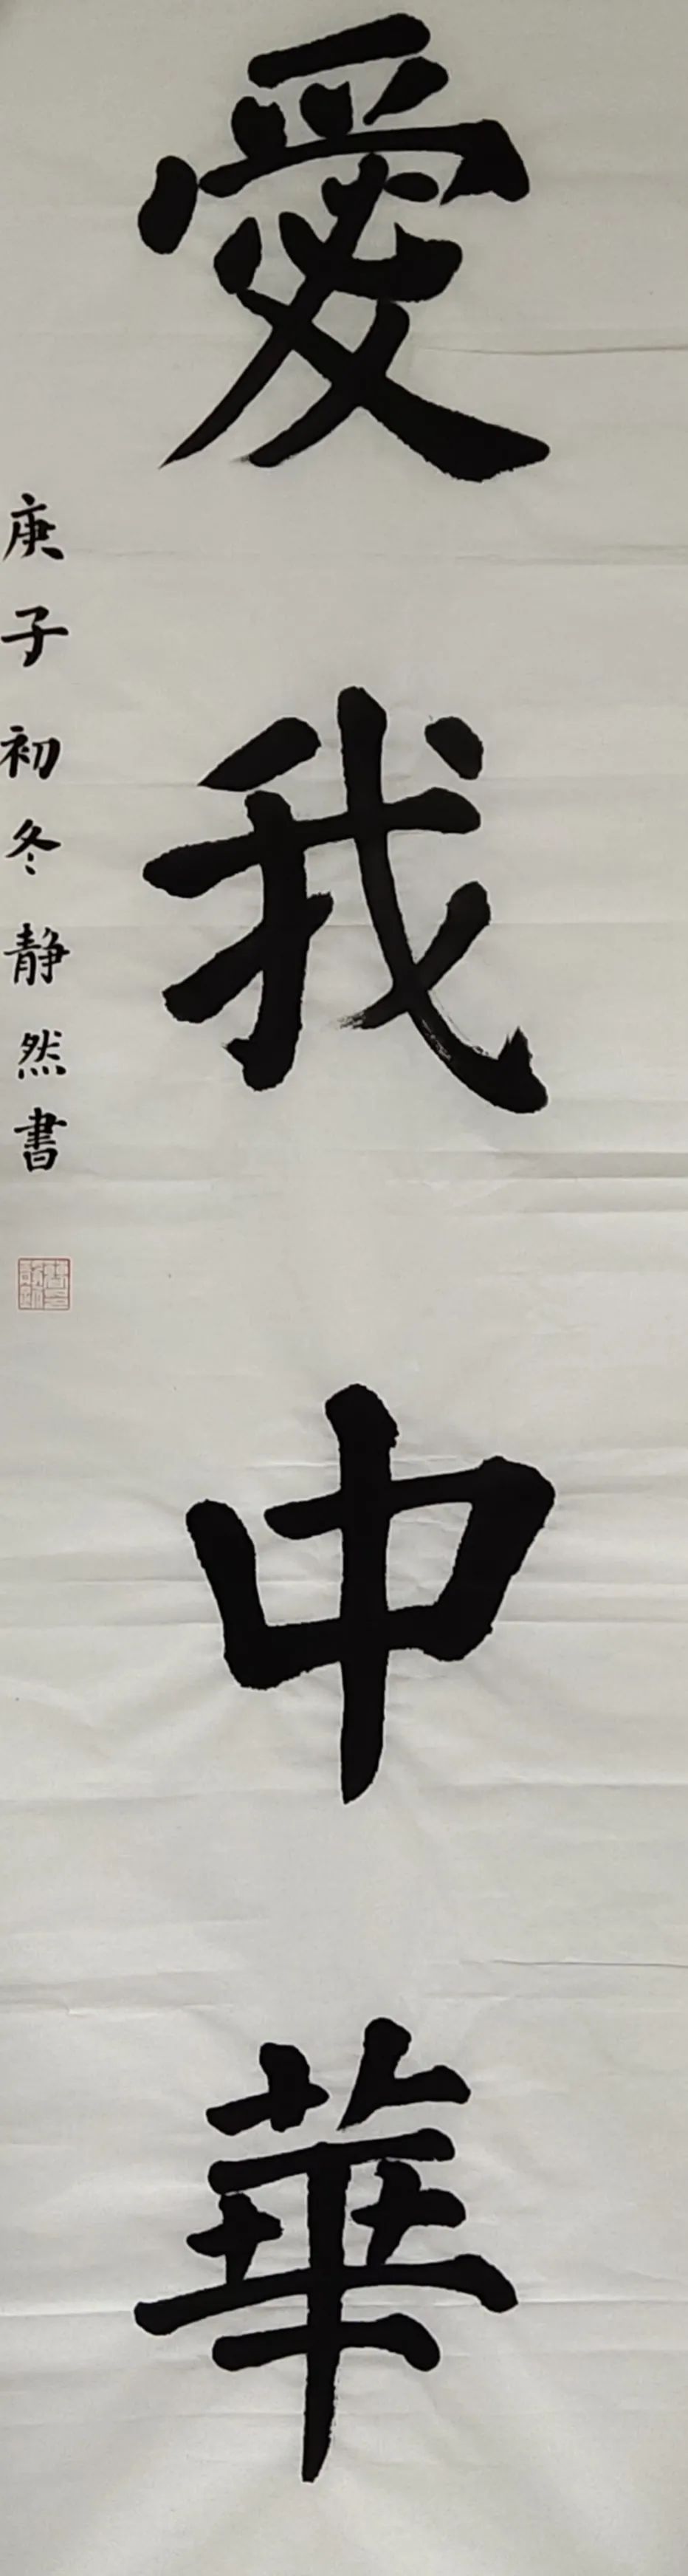 愛我中華
庚子初冬静然書